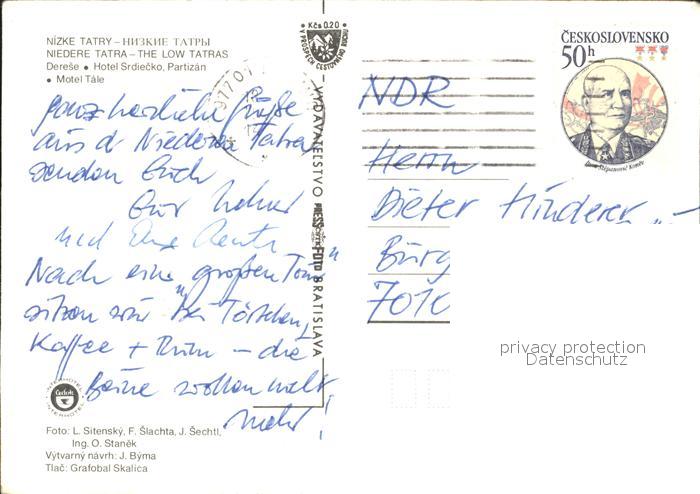 NÍZKE TATRY – НИЗКИЕ ТАТРЫ
NIEDERE TATRA – THE LOW TATRAS
Dereše ● Hotel Srdiečko, Partizán
● Motel Tále
Kčs 0,20
V PROSPECH CESTOVNÉHO RUCHU
ČESKOSLOVENSKO
50 h
Ivan Stěpanovič Koněv
ganz herzliche Grüße
aus d Niederen Tatra
senden Euch
Eur
und Eure
Nach eine "großen Tour"
sitzen wir "bei Tötchen"
Kaffee + Rum – die
Beine wollen nicht
mehr!
VYDAVATEĽSTVO PRESSFOTO BRATISLAVA
NDR
Herrn
Dieter Hinderer
Burg
7010
privacy protection
Datenschutz
INTERHOTEL
Čedok
INTERHOTEL
Foto: L. Sitenský, F. Šlachta, J. Šechtl,
Ing. O. Staněk
Výtvarný návrh: J. Býma
Tlač: Grafobal Skalica